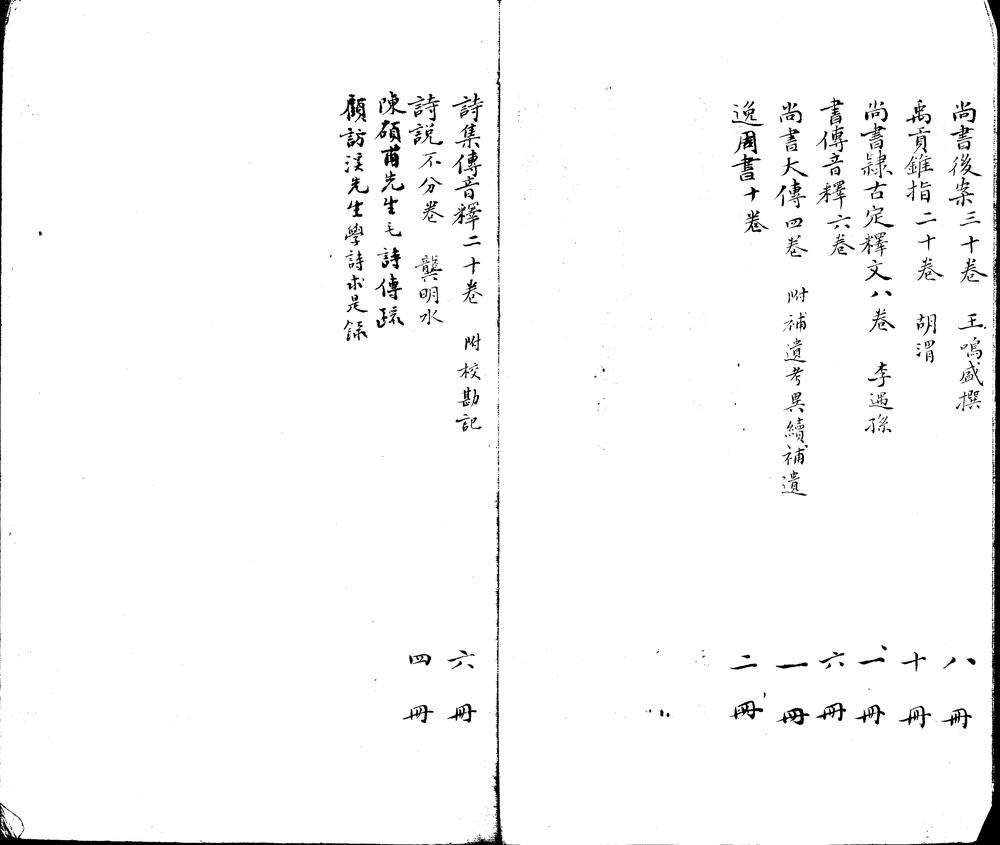 尚書後案三十卷 王鳴盛撰 八冊
禹貢錐指二十卷 胡渭 十冊
尚書隸古定釋文八卷 李遇孫 二冊
書傳音釋六卷 六冊
尚書大傳四卷 附補遺考異續補遺 一冊
逸周書十卷 二冊
詩集傳音釋二十卷 附校勘記 六冊
詩說不分卷 龔明水 四冊
陳碩甫先生毛詩傳疏
顧訪溪先生學詩求是錄